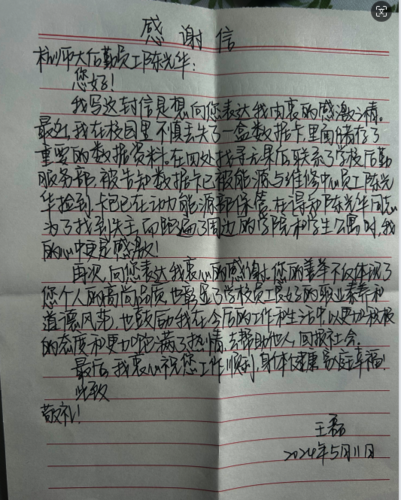 感谢信
杭师大后勤员工陈光华:
您好!
我写这封信是想向您表达我由衷的感激之情。
最近,我在校园里不慎丢失了一盒数据卡,里面储存了
重要的数据资料,在四处找寻无果后,联系了学校后勤
服务部,被告知数据卡已被能源与维修中心员工陈光
华捡到,卡已在动力能源部保管,在得知陈光华同志
为了找到失主,而跑遍了周边的学院和学生公寓时,我
的心中更是感激!
再次,向您表达我衷心的感谢,您的善举不仅体现了
您个人的高尚品质,也彰显了学校员工良好的职业素养和
道德风范,也鼓励我在今后的工作和生活中以更加积极
的态度和更加饱满了热情,去帮助他人,回报社会。
最后,我衷心祝您工作顺利,身体健康,家庭幸福!
此致
敬礼!
王磊
2024年5月11日